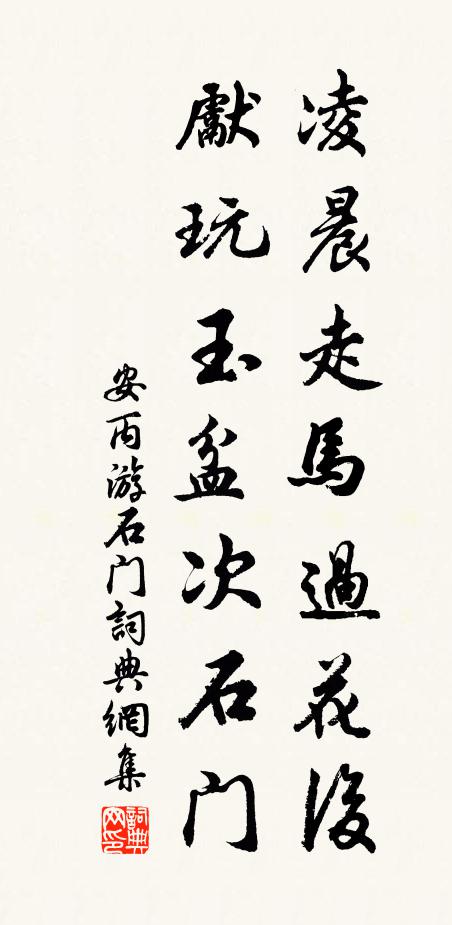 凌晨走馬過花後
獻玩玉盆次石门
安丙游石门詞典網集
詞典网印